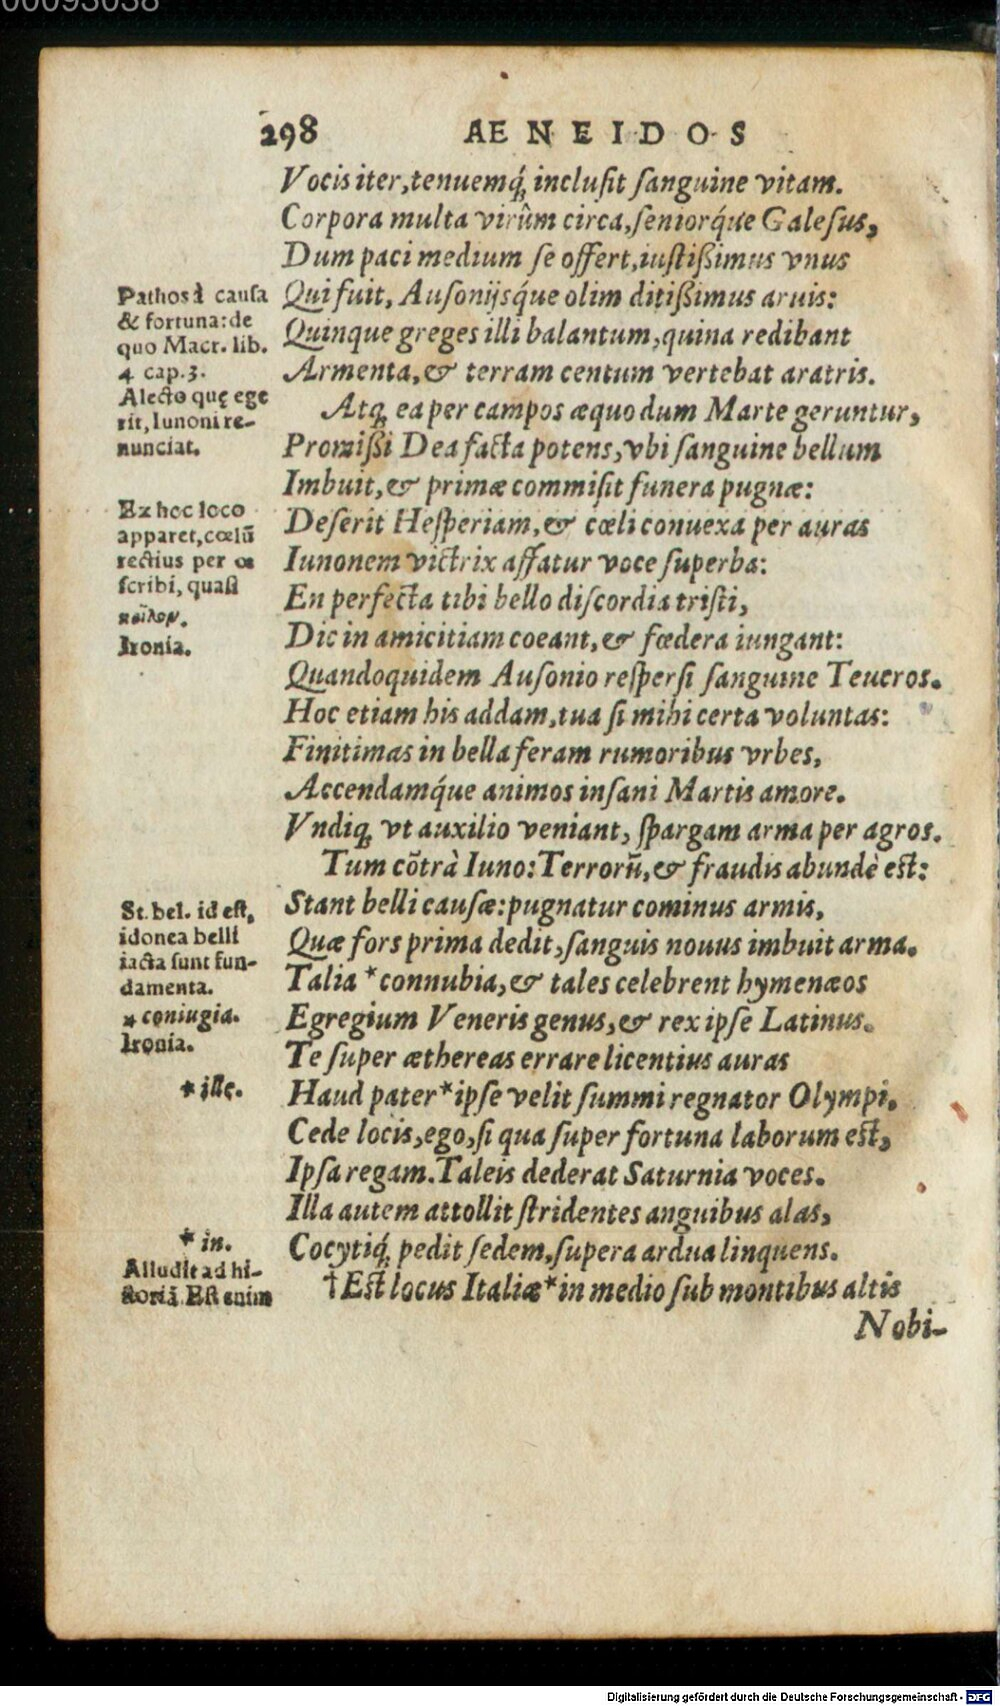 00093038
298 AENEIDOS
Vocis iter, tenuemq́; incluſit ſanguine vitam.
Corpora multa virûm circa, ſeniorq́ue Galeſus,
Dum paci medium ſe offert, iuſtißimus vnus
Qui fuit, Auſonijsq́ue olim ditißimus aruis:
Quinque greges illi balantum, quina redibant
Armenta, & terram centum vertebat aratris.
Atq; ea per campos æquo dum Marte geruntur,
Promißi Dea facta potens, vbi ſanguine bellum
Imbuit, & primæ commiſit funera pugnæ:
Deſerit Heſperiam, & cœli conuexa per auras
Iunonem victrix affatur voce ſuperba:
En perfecta tibi bello diſcordia triſti,
Dic in amicitiam coeant, & fœdera iungant:
Quandoquidem Auſonio reſperſi ſanguine Teucros.
Hoc etiam his addam, tua ſi mihi certa voluntas:
Finitimas in bella feram rumoribus vrbes,
Accendamq́ue animos inſani Martis amore.
Vndiq; vt auxilio veniant, ſpargam arma per agros.
Tum cõtrà Iuno: Terrorũ, & fraudis abundè eſt:
Stant belli cauſæ: pugnatur cominus armis,
Quæ fors prima dedit, ſanguis nouus imbuit arma.
Talia * connubia, & tales celebrent hymenæos
Egregium Veneris genus, & rex ipſe Latinus.
Te ſuper æthereas errare licentius auras
Haud pater * ipſe velit ſummi regnator Olympi.
Cede locis, ego, ſi qua ſuper fortuna laborum eſt,
Ipſa regam. Taleis dederat Saturnia voces.
Illa autem attollit ſtridentes anguibus alas,
Cocytiq́; pedit ſedem, ſupera ardua linquens.
† Eſt locus Italiæ * in medio ſub montibus altis
Nobi-
Pathos à cauſa
& fortuna: de
quo Macr. lib.
4 cap. 3.
Alecto quę ege
rit, Iunoni re-
nunciat.
Ex hoc loco
apparet, cœlũ
rectius per œ
ſcribi, quaſi
κοῖλον.
Ironia.
St. bel. id eſt,
idonea belli
iacta ſunt fun-
damenta.
* coniugia.
Ironia.
* ille.
* in.
Alludit ad hi-
ſtoriã. Eſt enim
Digitalisierung gefördert durch die Deutsche Forschungsgemeinschaft - DFG